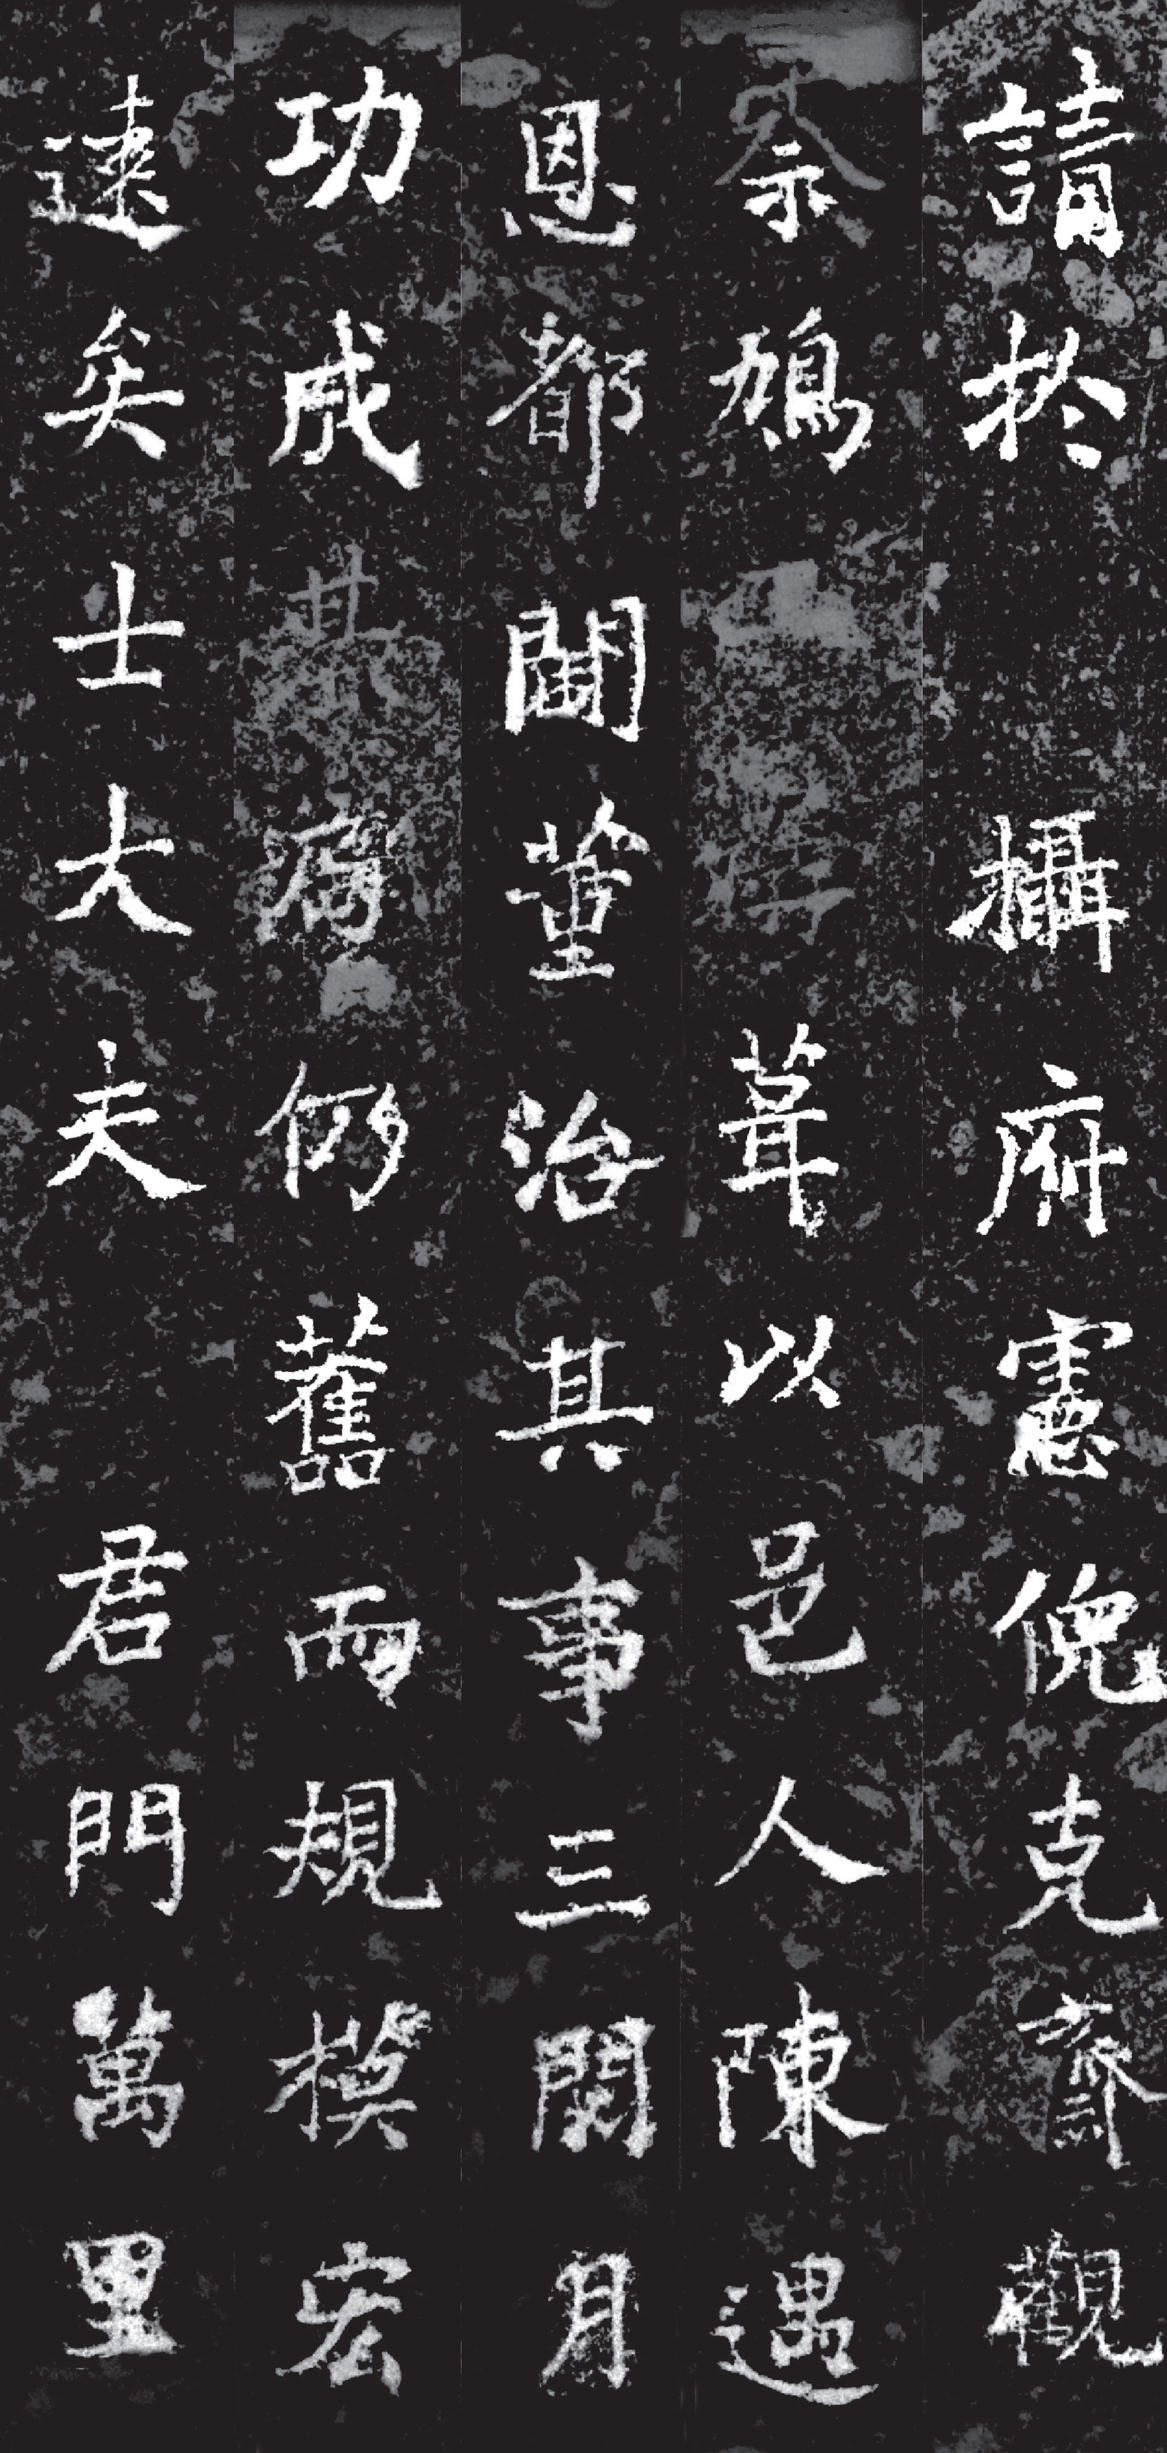 請於攝府憲倪克齋觀
察鳩葺以邑人陳遇
恩都闑董治其事三閱月
功成其廟仍舊而規模宏
遠矣士大夫君門萬里